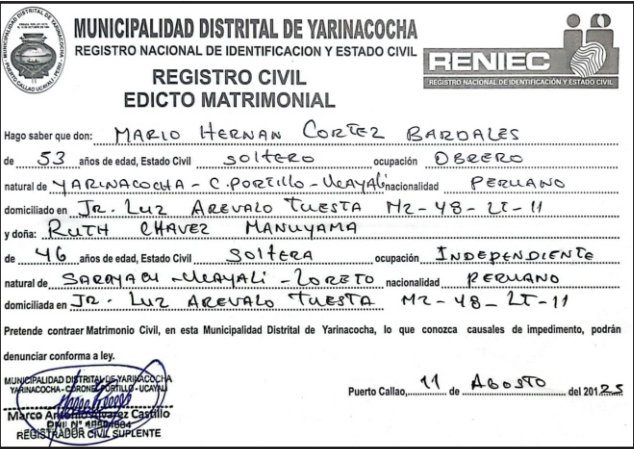 MUNICIPALIDAD DISTRITAL DE YARINACOCHA
REGISTRO NACIONAL DE IDENTIFICACION Y ESTADO CIVIL
REGISTRO CIVIL
EDICTO MATRIMONIAL
RENIEC
REGISTRO NACIONAL DE IDENTIFICACIÓN Y ESTADO CIVIL
Hago saber que don: MARIO HERNAN CORTEZ BARDALES
de 53 años de edad, Estado Civil SOLTERO ocupación OBRERO
natural de YARINACOCHA - C.PORTILLO - UCAYALI nacionalidad PERUANO
domiciliado en JR. LUZ AREVALO TUESTA MZ-48-LT-11
y doña: RUTH CHAVEZ MANUYAMA
de 46 años de edad, Estado Civil SOLTERA ocupación INDEPENDIENTE
natural de SARAYACU - UCAYALI - LORETO nacionalidad PERUANO
domiciliada en JR. LUZ AREVALO TUESTA MZ-48-LT-11
Pretende contraer Matrimonio Civil, en esta Municipalidad Distrital de Yarinacocha, lo que conozca causales de impedimento, podrán
denunciar conforma a ley.
MUNICIPALIDAD DISTRITAL DE YARINACOCHA
YARINACOCHA - CORONEL PORTILLO - UCAYALI
Puerto Callao, 11 de AGOSTO del 20125
Marco Antonio Alvarez Castillo
DNI N°
REGISTRADOR CIVIL SUPLENTE